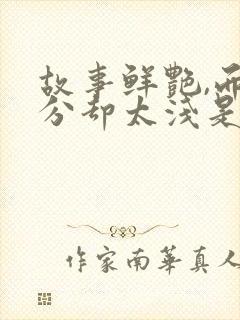 故事鮮艷,而
分却太浅是
作家南華真人